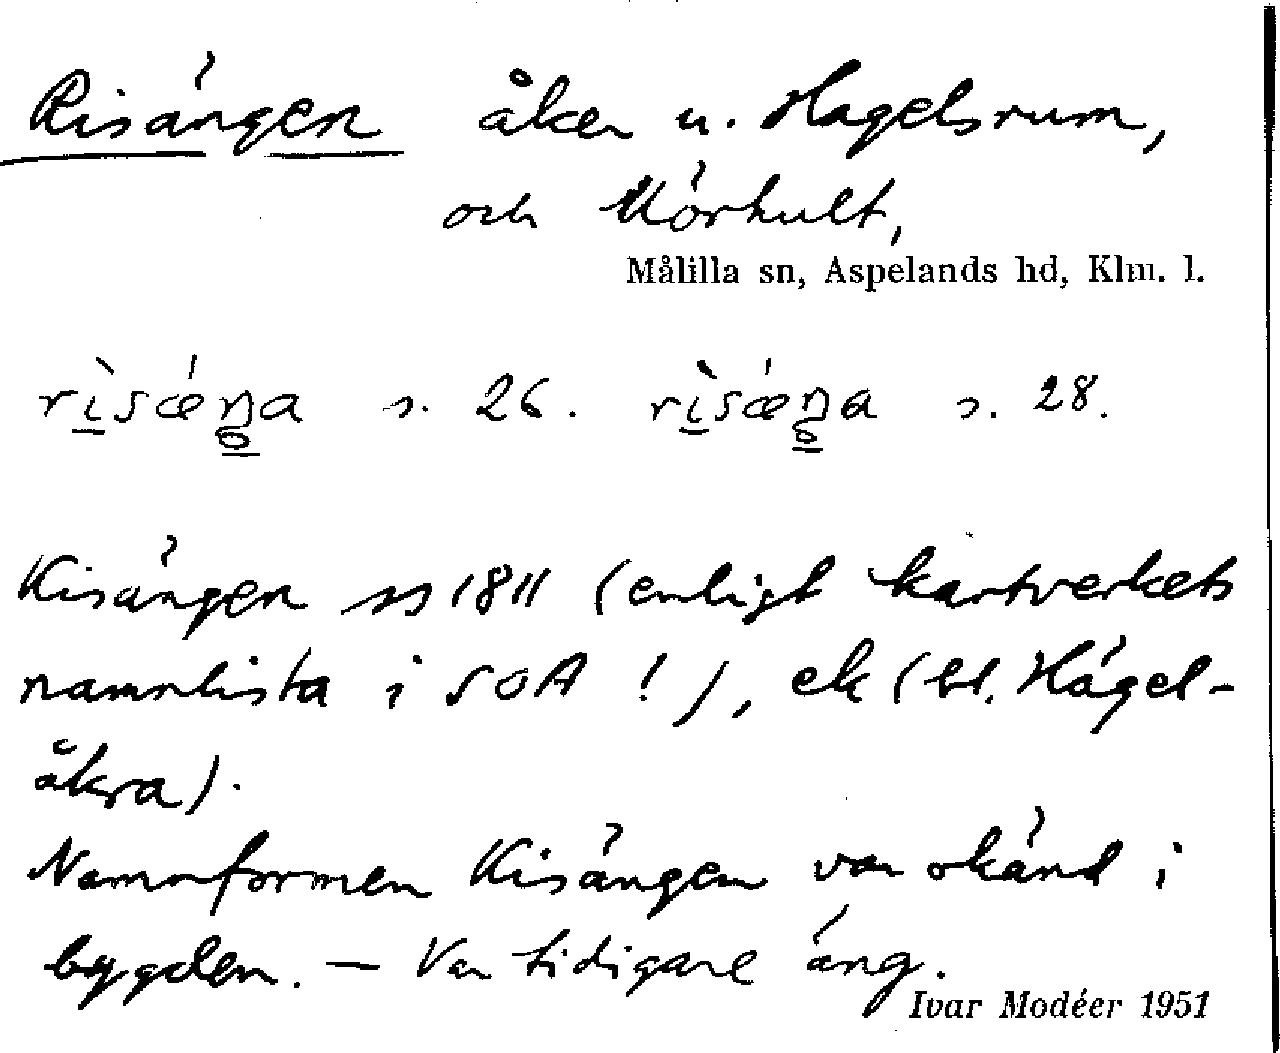 Risängen åker u. Hagelsrum,
och Mörhult,
Målilla sn, Aspelands hd, Klm. l.
rìsǽŋa s. 26. rìsǽŋa s. 28.
Kisängen 1811 (enligt kartverkets
namnlista i SOA !), ek (bl. Hägel-
åkra).
Namnformen Kisängen var okänd i
bygden. — Var tidigare äng.
Ivar Modéer 1951